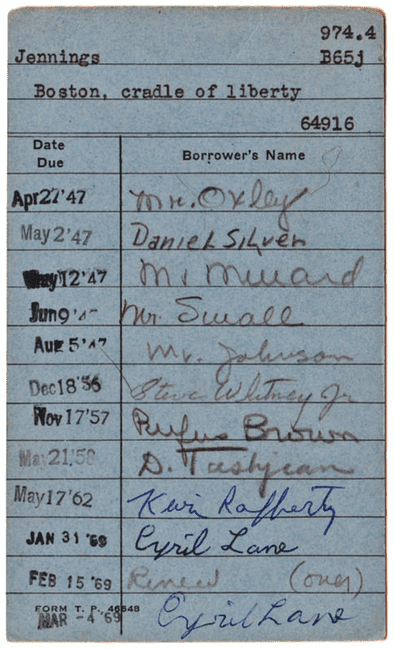 974.4
Jennings B65j
Boston, cradle of liberty
64916
Date Due Borrower's Name
Apr27'47 Mr. Oxley
May 2'47 Daniel Silver
May12'47 Mr Millard
Jun9'47 Mr. Small
Aug 5'47 Mr. Johnson
Dec18'56 Steve Whitney Jr
Nov 17'57 Rufus Brown
May21'58 D. Tashjian
May17'62 Kevin Rafferty
JAN 31 '69 Cyril Lane
FEB 15 '69 Renew (over)
FORM T. P. 46648
MAR -4 '69 Cyril Lane